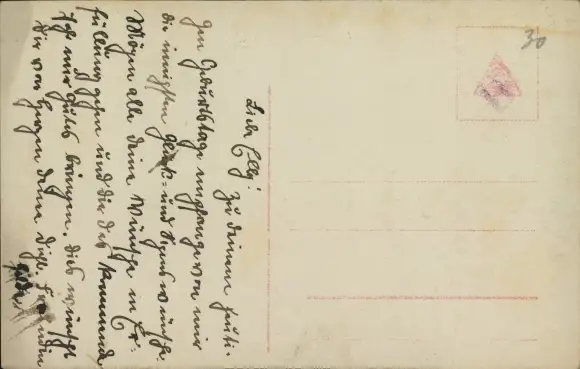 Liebe Elly!
Zu deinem heuti-
gen Geburtstage empfange von mir
die innigsten Glück- und Segenswünsche.
Mögen alle deine Wünsche in Er-
füllung gehen und dir das kommende
Jahr nur Gutes bringen, dies wünscht
dir von Herzen deine Freundin
30